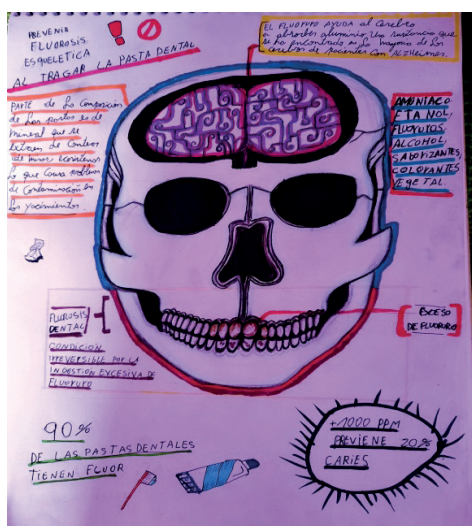 PREVENIR
FLUOROSIS
ESQUELETICA
AL TRAGAR LA PASTA DENTAL
EL FLUORURO AYUDA al Cerebro
a absorber aluminio. Una sustancia que
se ha encontrado en la mayoria de los
Cerebros de pacientes con Alzheimer.
PARTE de la Composición
de las pastas es de
mineral que se
extraen de
lo que Causa
de Contaminación en
los yacimientos.
AMONIACO
ETANOL,
FLUORUROS,
ALCOHOL,
SABORIZANTES,
COLORANTES,
VEGETAL.
FLUROSIS
DENTAL
CONDICION
IRREVERSIBLE POR LA
INGESTION EXCESIVA DE
FLUORURO
EXCESO
DE FLUORURO
90%
DE LAS PASTAS DENTALES
TIENEN FLUOR
+1000 PPM
PREVIENE 20%
CARIES